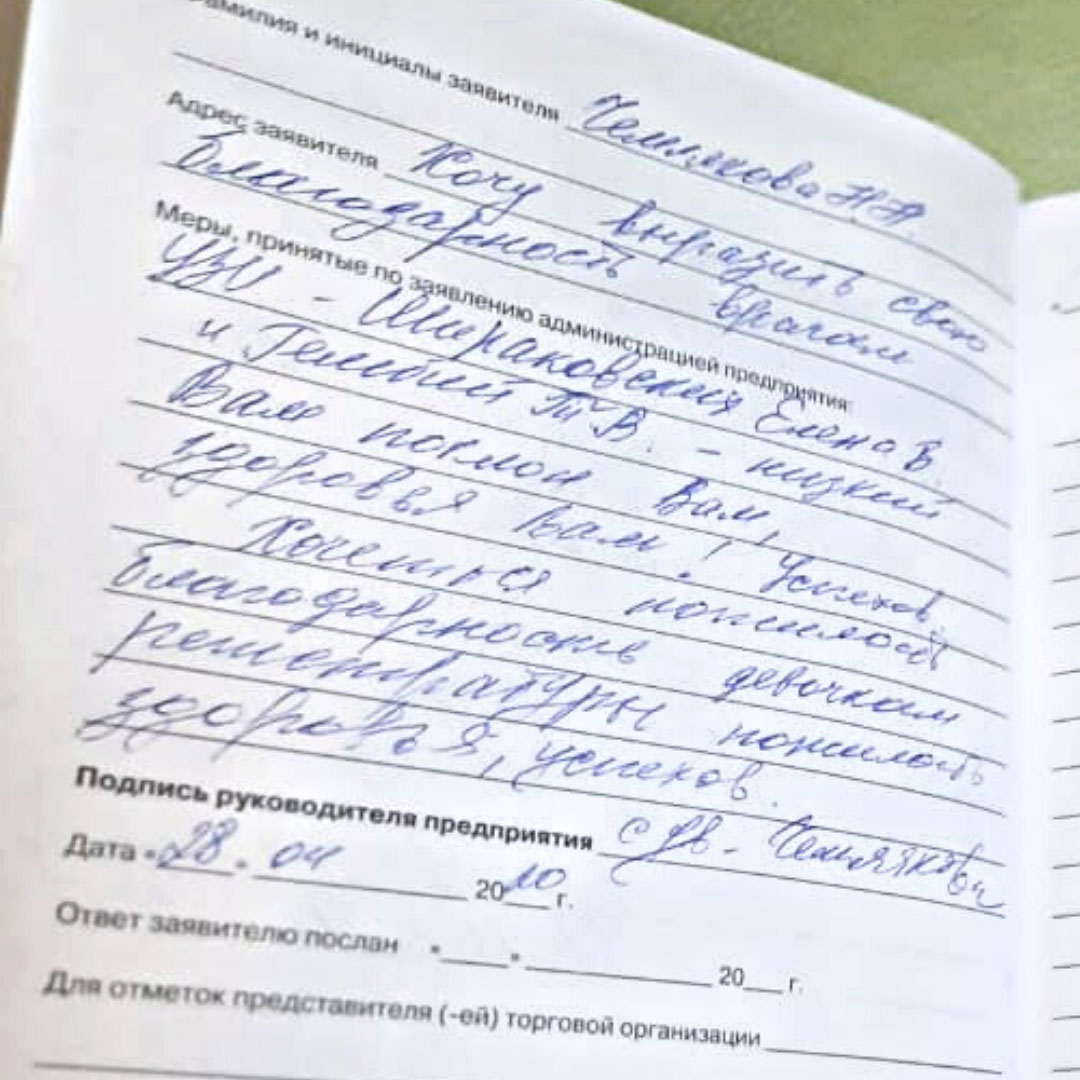 Фамилия и инициалы заявителя Чемпякова Н.А
Адрес заявителя Хочу выразить свою
благодарность врачам
Меры, принятые по заявлению администрацией предприятия:
УЗИ - Шираковский Елена В.
и Гембий Т.В. - низкий
Вам поклон Вам,
здоровья Вам! Успехов.
Хочется пожелать
благодарность девочкам
регистратуры пожелать
здоровья, успехов.
Подпись руководителя предприятия с ув.
Дата "28" 04 20 г.
Ответ заявителю послан " " 20 г.
Для отметок представителя (-ей) торговой организации